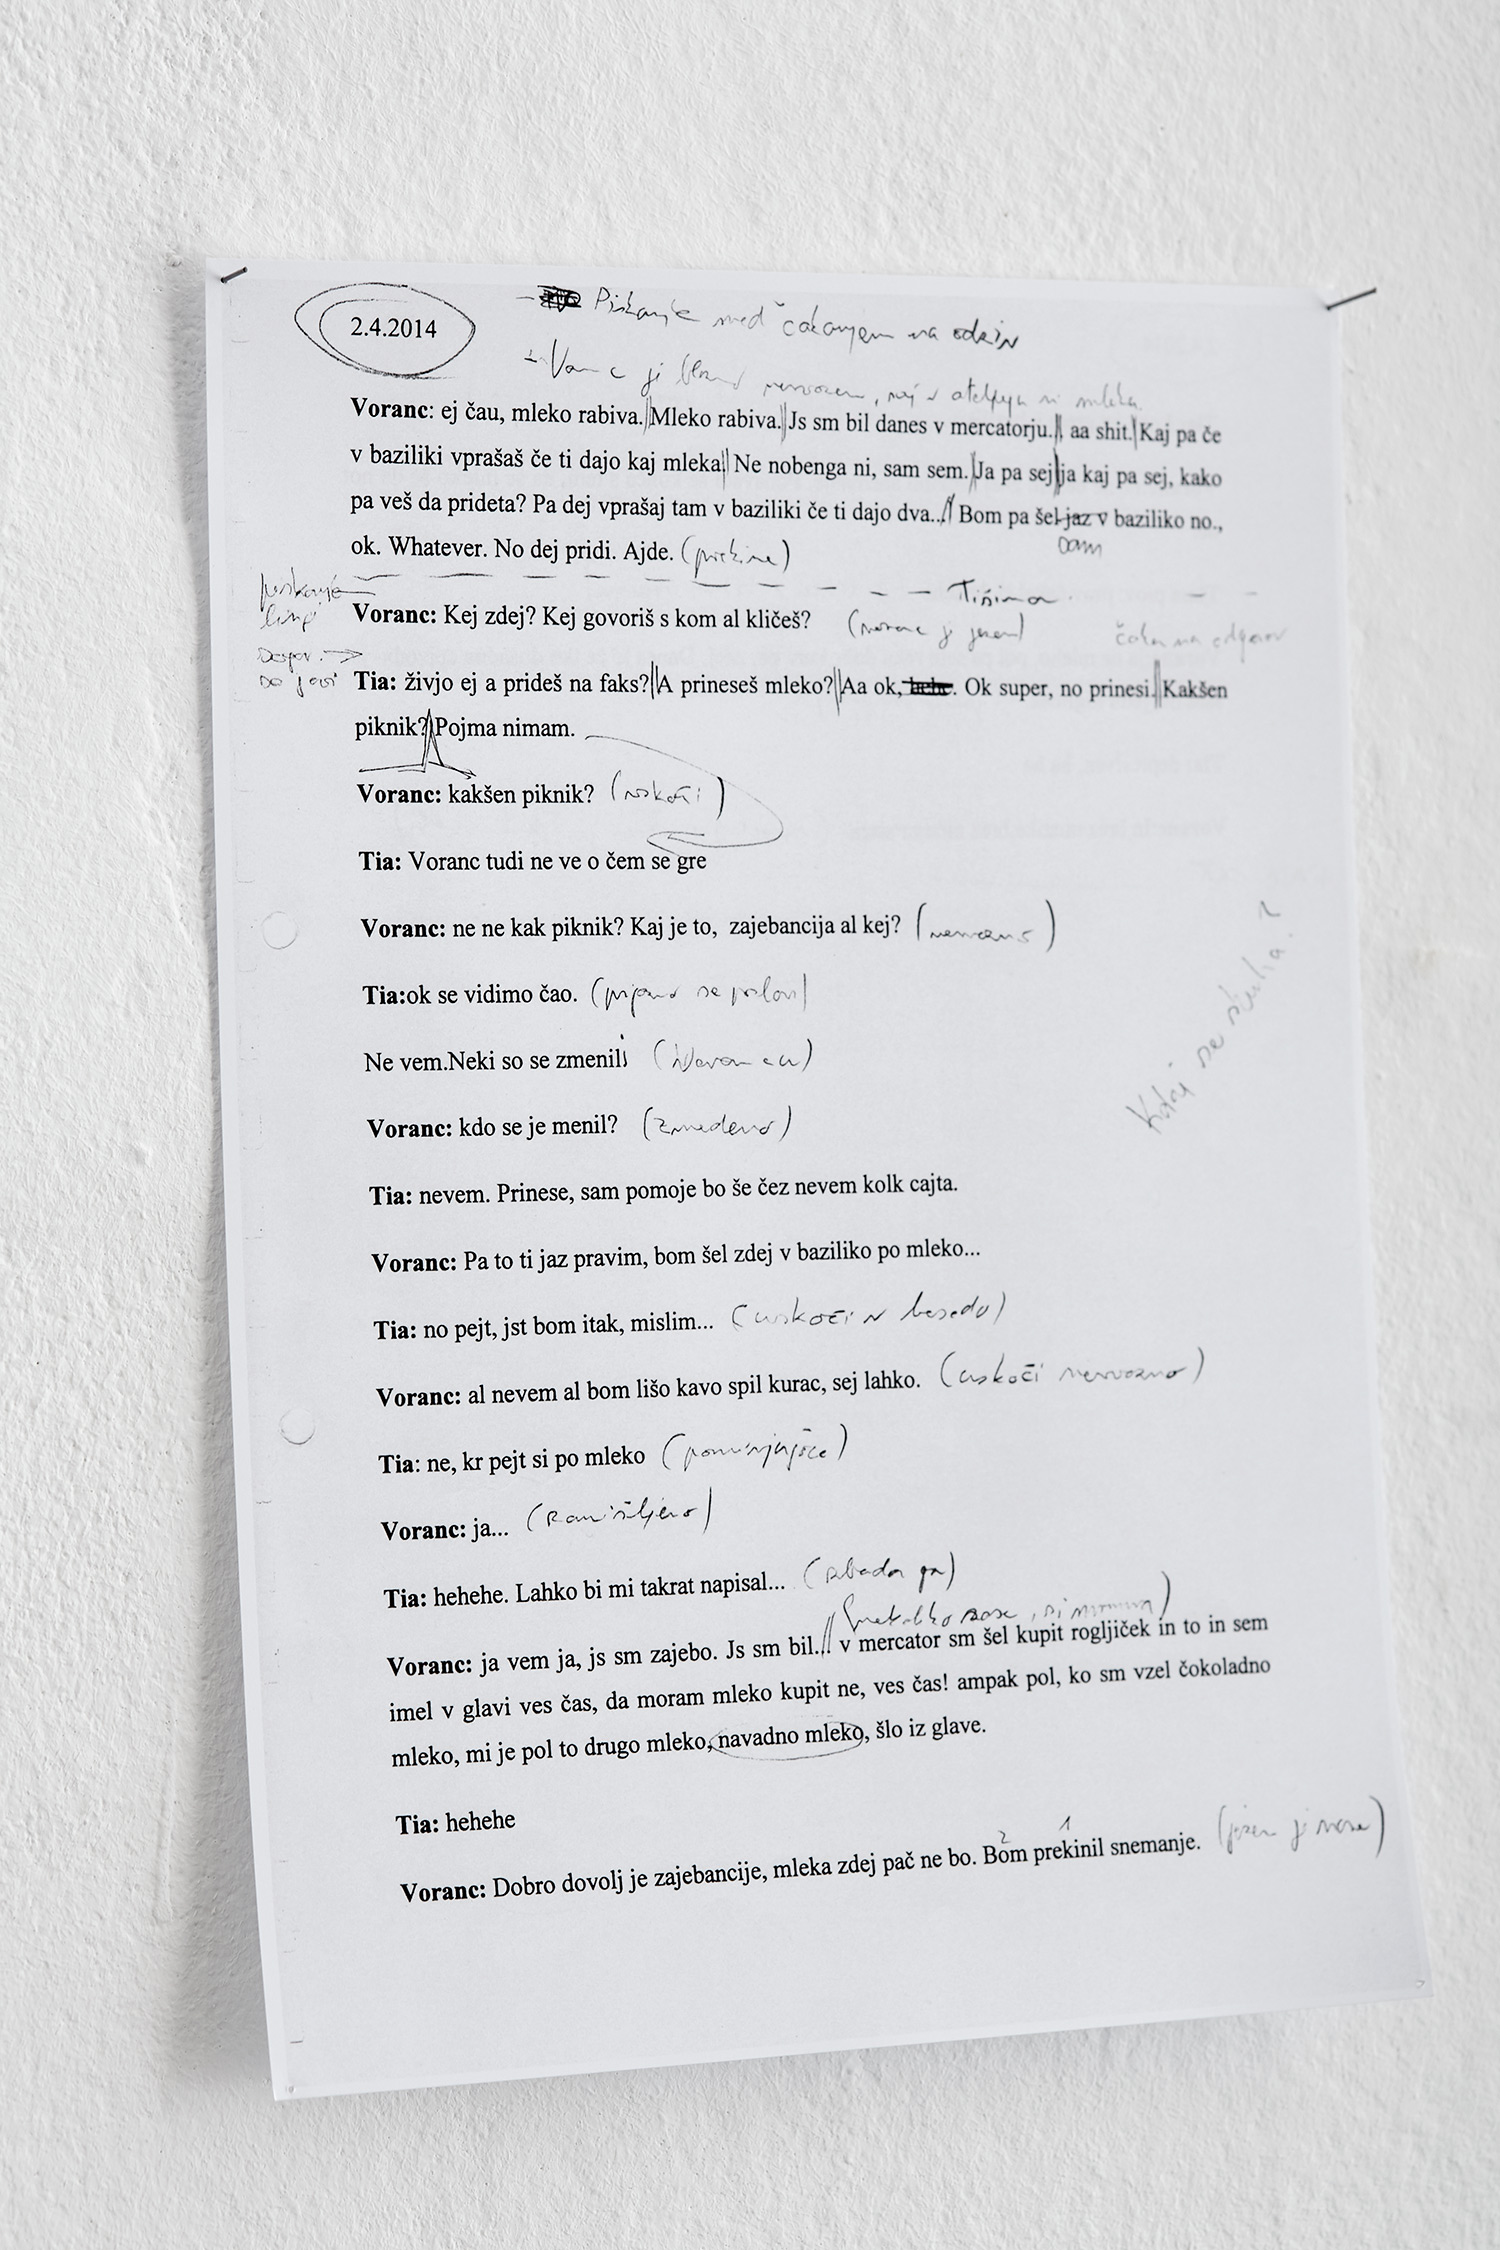 2.4.2014
med čakanjem na odziv
Voranc: ej čau, mleko rabiva. Mleko rabiva. Js sm bil danes v mercatorju. aa shit. Kaj pa če
v baziliki vprašaš če ti dajo kaj mleka. Ne nobenga ni, sam sem. Ja pa sej ja kaj pa sej, kako
pa veš da prideta? Pa dej vprašaj tam v baziliki če ti dajo dva... Bom pa šel jaz v baziliko no.,
ok. Whatever. No dej pridi. Ajde. (prekine)
Tišina
Voranc: Kej zdej? Kej govoriš s kom al kličeš?
čaka na odgovor
Tia: živjo ej a prideš na faks? A prineseš mleko? Aa ok, hehe. Ok super, no prinesi. Kakšen
piknik? Pojma nimam.
Voranc: kakšen piknik? (vskoči)
Tia: Voranc tudi ne ve o čem se gre
Voranc: ne ne kak piknik? Kaj je to, zajebancija al kej?
Tia:ok se vidimo čao.
Ne vem.Neki so se zmenili
Voranc: kdo se je menil? (zmedeno)
Tia: nevem. Prinese, sam pomoje bo še čez nevem kolk cajta.
Voranc: Pa to ti jaz pravim, bom šel zdej v baziliko po mleko...
Tia: no pejt, jst bom itak, mislim... (uskoči v besedo)
Voranc: al nevem al bom lišo kavo spil kurac, sej lahko. (uskoči nervozno)
Tia: ne, kr pejt si po mleko (pomirjujoče)
Voranc: ja... (zamišljeno)
Tia: hehehe. Lahko bi mi takrat napisal... (zbada ga)
Voranc: ja vem ja, js sm zajebo. Js sm bil... v mercator sm šel kupit rogljiček in to in sem
imel v glavi ves čas, da moram mleko kupit ne, ves čas! ampak pol, ko sm vzel čokoladno
mleko, mi je pol to drugo mleko, navadno mleko, šlo iz glave.
Tia: hehehe
2 1
Voranc: Dobro dovolj je zajebancije, mleka zdej pač ne bo. Bom prekinil snemanje.